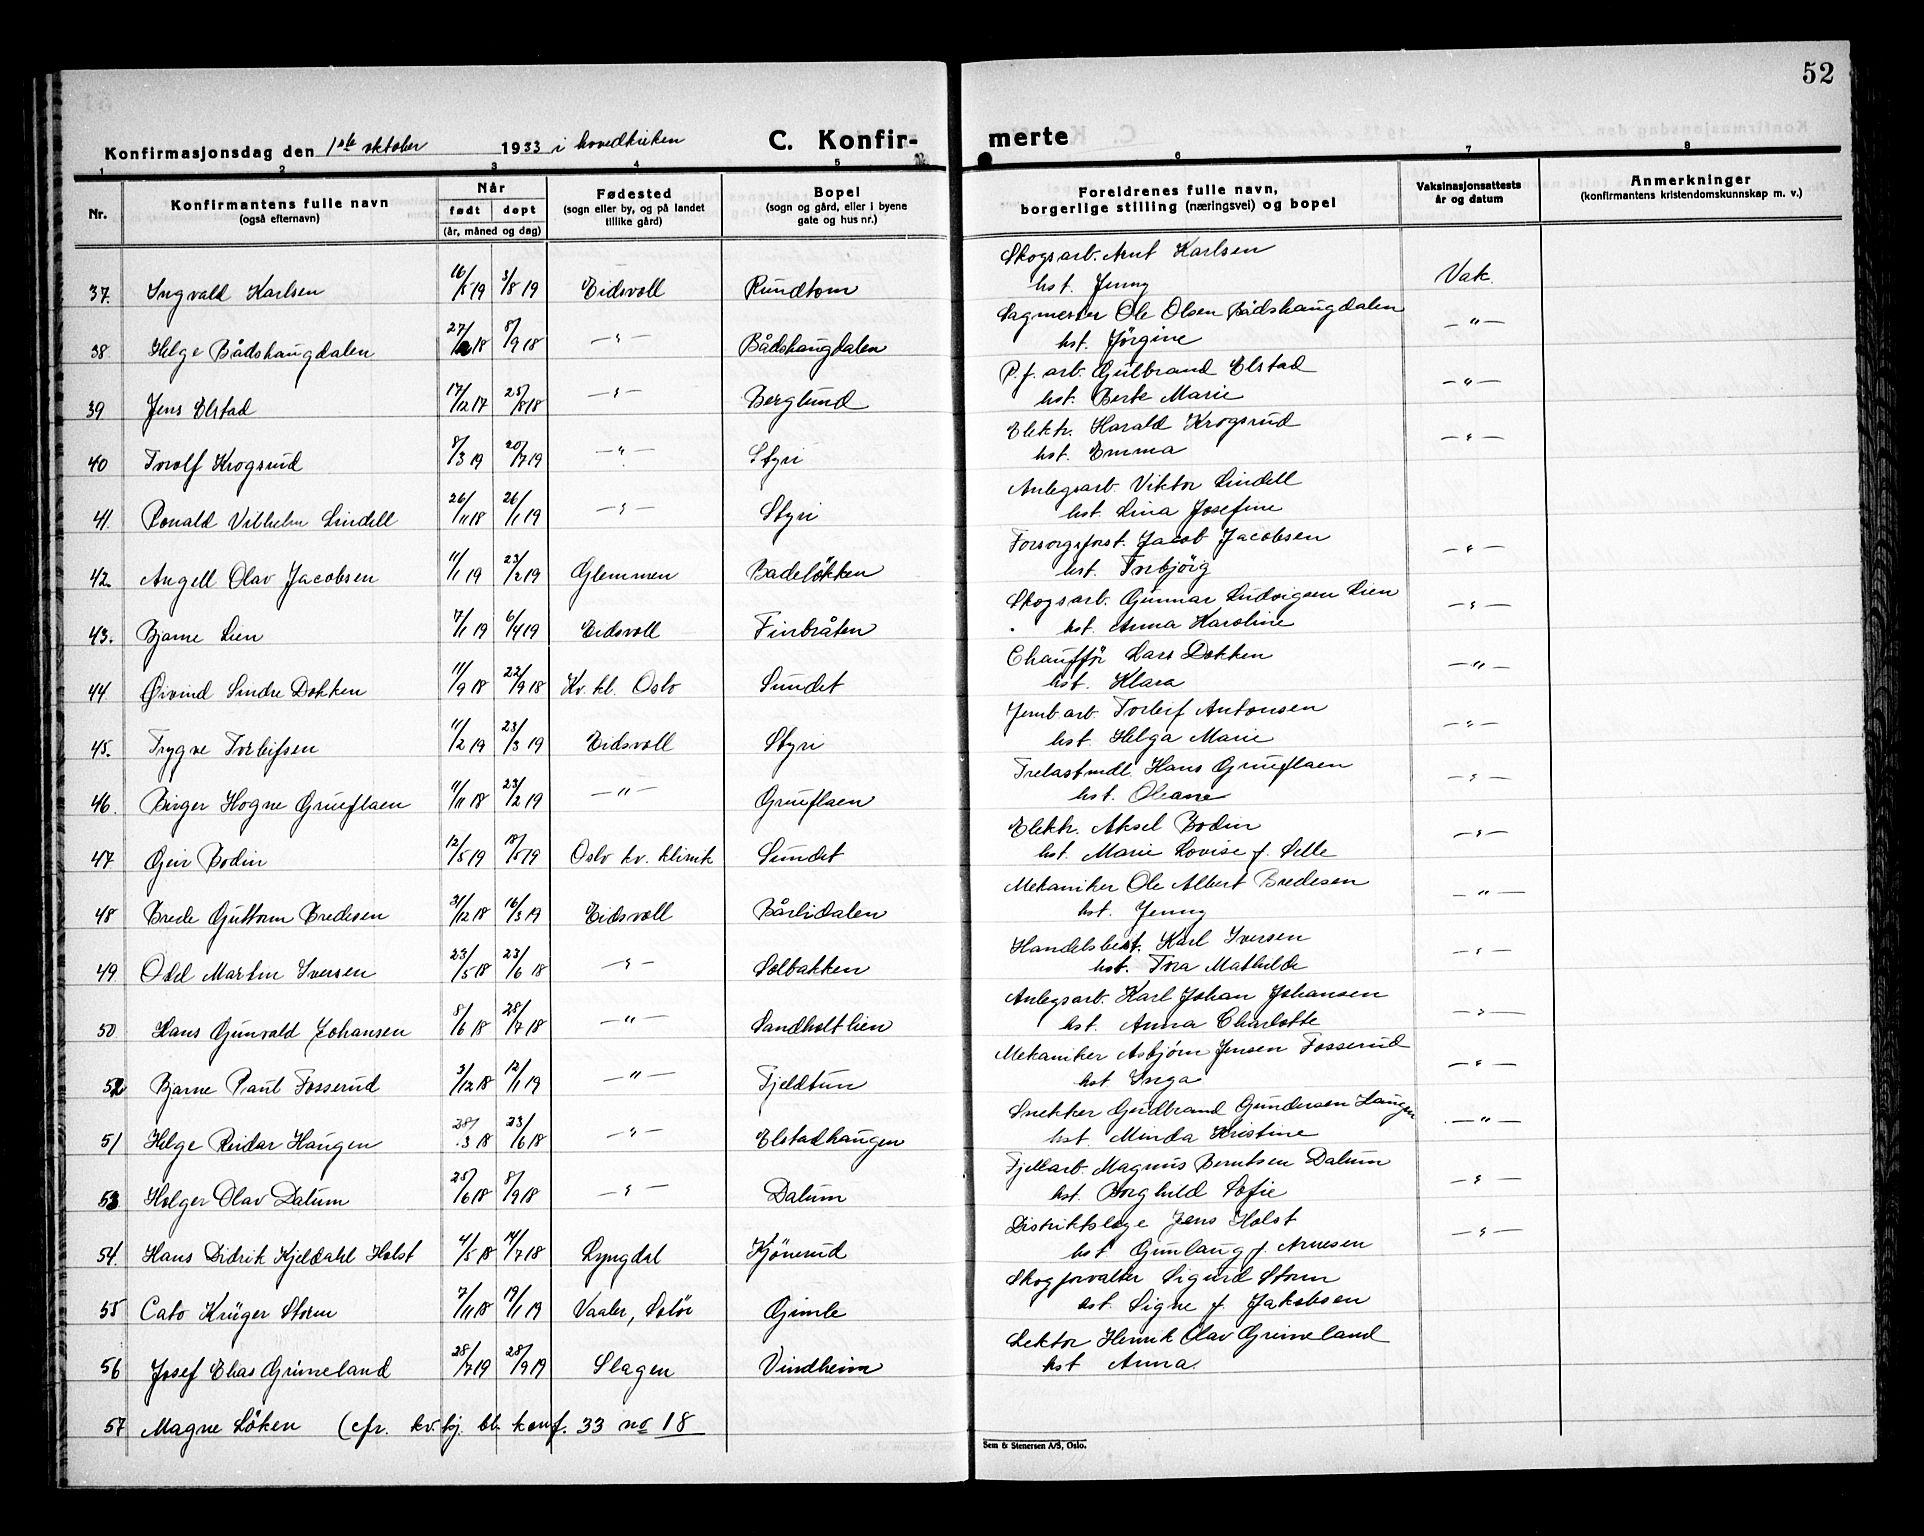 52
Konfirmasjonsdag den 1ste oktober 1933 i hovedkirken C. Konfirmerte
1 2 3 4 5 6 7 8
Nr. Konfirmantens fulle navn (også efternavn) Når født døpt (år, måned og dag) Fødested (sogn eller by, og på landet tillike gård) Bopel (sogn og gård, eller i byene gate og hus nr.) Foreldrenes fulle navn, borgerlige stilling (næringsvei) og bopel Vaksinasjonsattests år og datum Anmerkninger (konfirmantens kristendomskunnskap m. v.)
Skogsarb. Arnt Karlsen
37. Ingvald Karlsen 16/5 19 3/8 19 Eidsvoll Rundtom hst. Jenny Vak.
Sagmester Ole Olsen Bådshaugdalen
38 Helge Bådshaugdalen 27/ 18 8/9 18 —"— Bådshaugdalen hst. Jörgine —"—
P.f. arb. Gulbrand Elstad
39 Jens Elstad 17/12 17 25/8 18 —"— Berglund hst. Berte Marie —"—
Elektr. Harald Krogsrud
40 Torolf Krogsrud 8/3 19 20/7 19 —"— Styri hst. Emma —"—
Anlegsarb. Viktor Lindell
41. Ronald Vilhelm Lindell 26/11 18 26/1 19 —"— Styri hst. Lina Josefine
Forsorgsforst. Jacob Jacobsen
42. Angell Olav Jacobsen 11/1 19 23/2 19 Glemmen Badeløkken hst. Torbjörg —"—
Skogsarb. Gunnar Ludvigsen Lien
43. Bjarne Lien 7/1 19 6/4 19 Eidsvoll Finbråten hst. Anna Karoline —"—
Chauffør Lars Dokken
44 Øivind Sindre Dokken 11/9 18 22/9 18 Kv. kl. Oslo Sundet hst. Klara —"—
Jernb.arb. Torleif Antonsen
45. Trygve Torleifsen 11/2 19 23/3 19 Eidsvoll Styri hst. Helga Marie —"—
Trelasthndl. Hans Grueflaen
46. Birger Hogne Grueflaen 11/11 18 23/2 19 —"— Grueflaen hst. Oleane —"—
Elektr. Aksel Bodin
47 Geir Bodin 12/5 19 18/5 19 Oslo kv. klinik Sundet hst. Marie Lovise f. Selle —"—
Mekaniker Ole Albert Bredesen
48 Brede Guttorm Bredesen 31/12 18 16/3 19 Eidsvoll Bårlidalen hst. Jenny —"—
Handelsbest. Karl Iversen
49. Odd Martin Iversen 23/5 18 23/6 18 —"— Solbakken hst. Tora Mathilde —"—
Anlegsarb. Karl Johan Johansen
50. Hans Gunvald Johansen 8/6 18 28/7 18 —"— Sandholtlien hst. Anna Charlotte —"—
Mekaniker Asbjørn Jensen Fosserud
52 Bjarne Paul Fosserud 3/12 18 12/1 19 —"— Fjeldtun hst Inga —"—
Snekker Gudbrand Gundersen Haugen
51 Helge Reidar Haugen 28/3 18 23/6 18 —"— Elstadhaugen hst. Minda Kristine —"—
Fjellarb. Magnus Berntsen Dalum
53 Holger Olav Dalum 25/6 18 8/9 18 —"— Dalum hst. Borghild Sofie —"—
Distriktslege Jens Holst
54. Hans Didrik Kjeldahl Holst 4/5 18 14/7 18 Lyngdal Kjönerud hst Gunlaug f. Arnesen —"—
Skogforvalter Sigurd Storm
55 Cato Krüger Storm 7/11 18 19/1 19 Vaaler, Solør Gimle hst. Signe f. Jakobsen
Lektor Henrik Olav Grimeland
56 Josef Elias Grimeland 28/7 19 28/9 19 Slagen Vindheim hst Anna.
57 Magne Löken (cfr. kv. bj. bl. konf. 33 no 18
Sem & Stenersen A/S, Oslo.